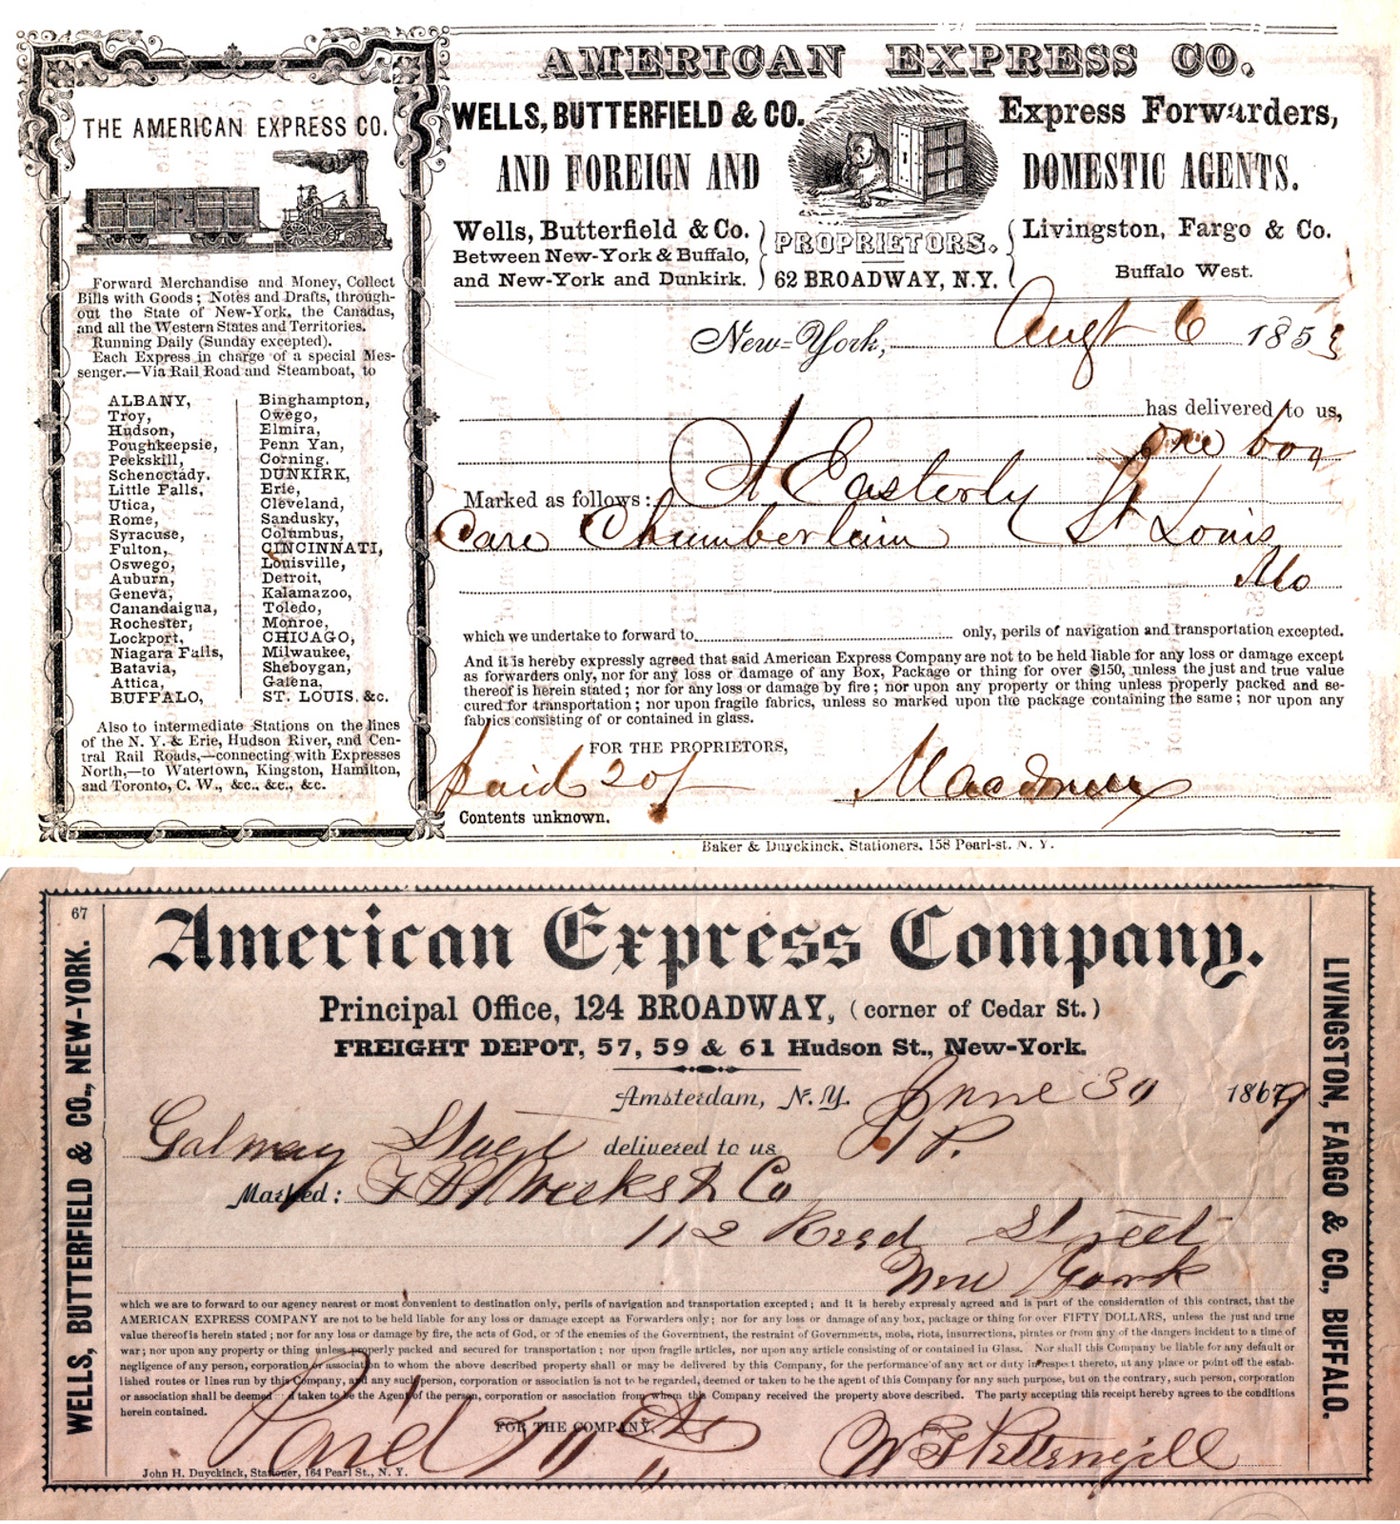 THE AMERICAN EXPRESS CO.
Forward Merchandise and Money, Collect
Bills with Goods; Notes and Drafts, through-
out the State of New-York, the Canadas,
and all the Western States and Territories.
Running Daily (Sunday excepted).
Each Express in charge of a special Mes-
senger.—Via Rail Road and Steamboat, to
ALBANY,
Troy,
Hudson,
Poughkeepsie,
Peekskill,
Schenectady.
Little Falls,
Utica,
Rome,
Syracuse,
Fulton,
Oswego,
Auburn,
Geneva,
Canandaigua,
Rochester,
Lockport,
Niagara Falls,
Batavia,
Attica,
BUFFALO,
Binghampton,
Owego,
Elmira,
Penn Yan,
Corning.
DUNKIRK,
Erie,
Cleveland,
Sandusky,
Columbus,
CINCINNATI,
Louisville,
Detroit,
Kalamazoo,
Toledo,
Monroe,
CHICAGO,
Milwaukee,
Sheboygan,
Galena,
ST. LOUIS. &c.
Also to intermediate Stations on the lines
of the N. Y. & Erie, Hudson River, and Cen-
tral Rail Roads,—connecting with Expresses
North,—to Watertown, Kingston, Hamilton,
and Toronto, C. W., &c., &c., &c.
AMERICAN EXPRESS CO.
WELLS, BUTTERFIELD & CO. Express Forwarders,
AND FOREIGN AND DOMESTIC AGENTS.
Wells, Butterfield & Co.
Between New-York & Buffalo,
and New-York and Dunkirk.
PROPRIETORS.
62 BROADWAY, N.Y.
Livingston, Fargo & Co.
Buffalo West.
New-York, Augt 6 1853
has delivered to us,
one box
Marked as follows: A Easterly
Care Chamberlain St Louis
Mo
which we undertake to forward to only, perils of navigation and transportation excepted.
And it is hereby expressly agreed that said American Express Company are not to be held liable for any loss or damage except
as forwarders only, nor for any loss or damage of any Box, Package or thing for over $150, unless the just and true value
thereof is herein stated; nor for any loss or damage by fire; nor upon any property or thing unless properly packed and se-
cured for transportation; nor upon fragile fabrics, unless so marked upon the package containing the same; nor upon any
fabrics consisting of or contained in glass.
FOR THE PROPRIETORS,
paid 20/
Contents unknown.
Baker & Duyckinck, Stationers, 158 Pearl-st. N. Y.
67
WELLS, BUTTERFIELD & CO., NEW-YORK.
American Express Company.
Principal Office, 124 BROADWAY, (corner of Cedar St.)
FREIGHT DEPOT, 57, 59 & 61 Hudson St., New-York.
Amsterdam, N. Y. June 30 1869
Galway delivered to us 1 P.
Marked: Weeks & Co
112 Read Street
New York
which we are to forward to our agency nearest or most convenient to destination only, perils of navigation and transportation excepted; and it is hereby expressly agreed and is part of the consideration of this contract, that the
AMERICAN EXPRESS COMPANY are not to be held liable for any loss or damage except as Forwarders only; nor for any loss or damage of any box, package or thing for over FIFTY DOLLARS, unless the just and true
value thereof is herein stated; nor for any loss or damage by fire, the acts of God, or of the enemies of the Government, the restraint of Governments, mobs, riots, insurrections, pirates or from any of the dangers incident to a time of
war; nor upon any property or thing unless properly packed and secured for transportation; nor upon fragile articles, nor upon any article consisting of or contained in Glass. Nor shall this Company be liable for any default or
negligence of any person, corporation or association to whom the above described property shall or may be delivered by this Company, for the performance of any act or duty in respect thereto, at any place or point off the estab-
lished routes or lines run by this Company, and any such person, corporation or association is not to be regarded, deemed or taken to be the agent of this Company for any such purpose, but on the contrary, such person, corporation
or association shall be deemed taken to be the Agent of the person, corporation or association from whom this Company received the property above described. The party accepting this receipt hereby agrees to the conditions
herein contained.
FOR THE COMPANY,
Paid
John H. Duyckinck, Stationer, 164 Pearl St., N. Y.
LIVINGSTON, FARGO & CO., BUFFALO.